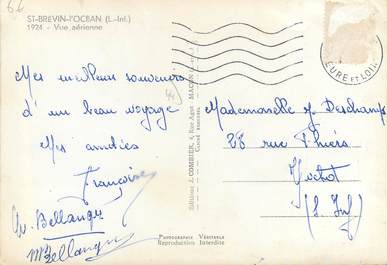 ST-BREVIN-l'OCEAN (L.-Inf.)
1924 - Vue aérienne
Mes meilleurs souvenirs
d'un beau voyage
Mes amitiés
Françoise
Bellanger
Bellanger
Editions J. COMBIER, 4, Rue Agut MACON
EURE ET LOIR
Mademoiselle M Deschamps
28 rue Thiers
Yvetot
(S. Inf)
Photographie Véritable
Reproduction Interdite